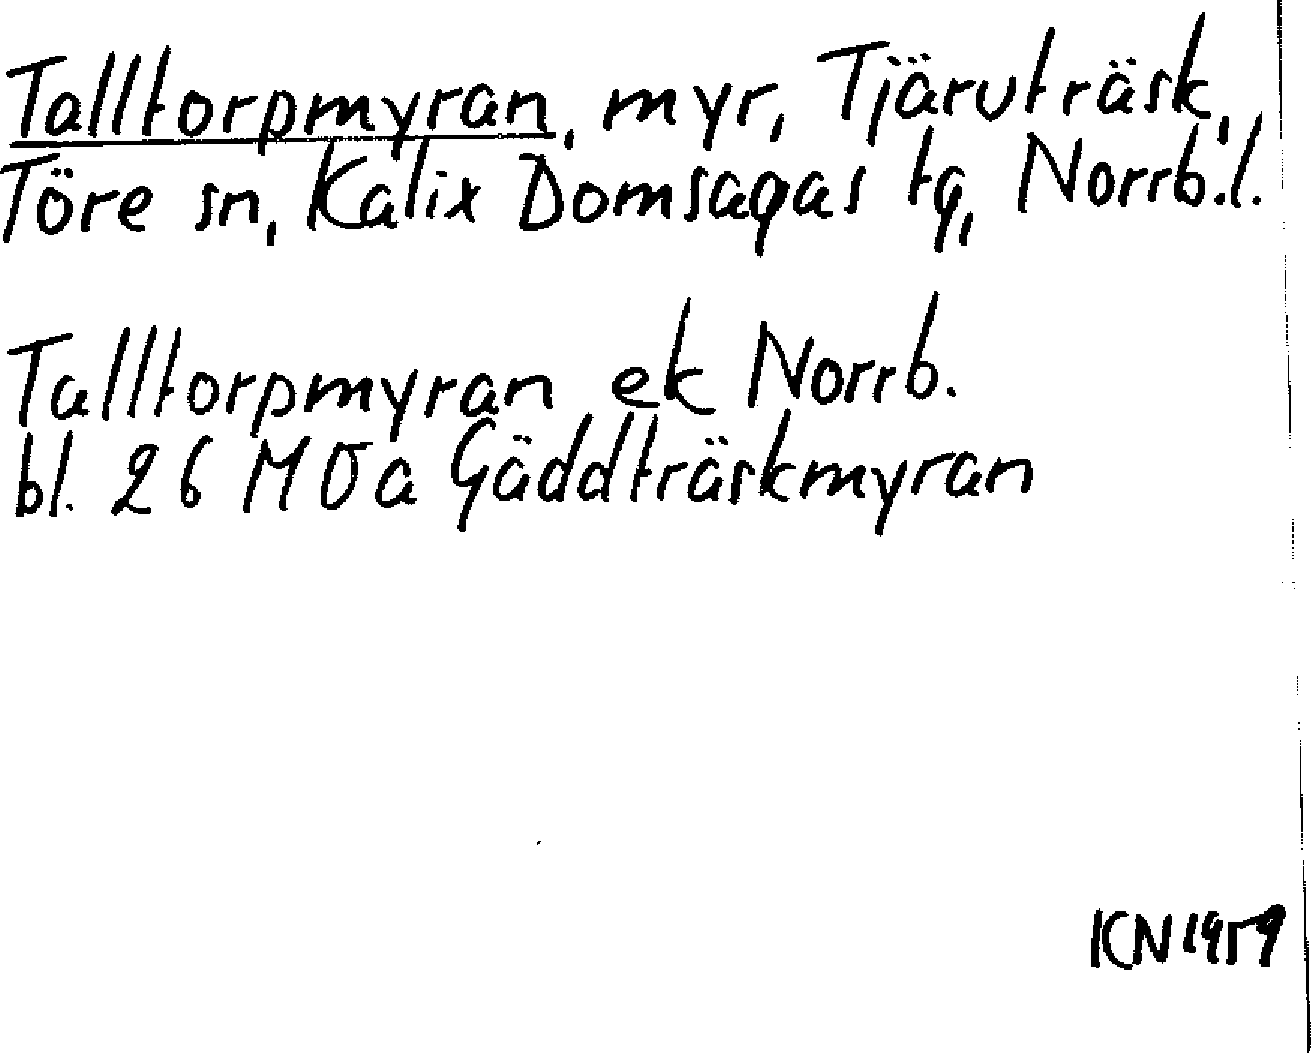 Talltorpmyran, myr, Tjärutträsk,
Töre sn, Kalix Domsagas tg, Norrb.l.
Talltorpmyran ek Norrb.
bl. 26 NOa Gäddträskmyran
KN 1959